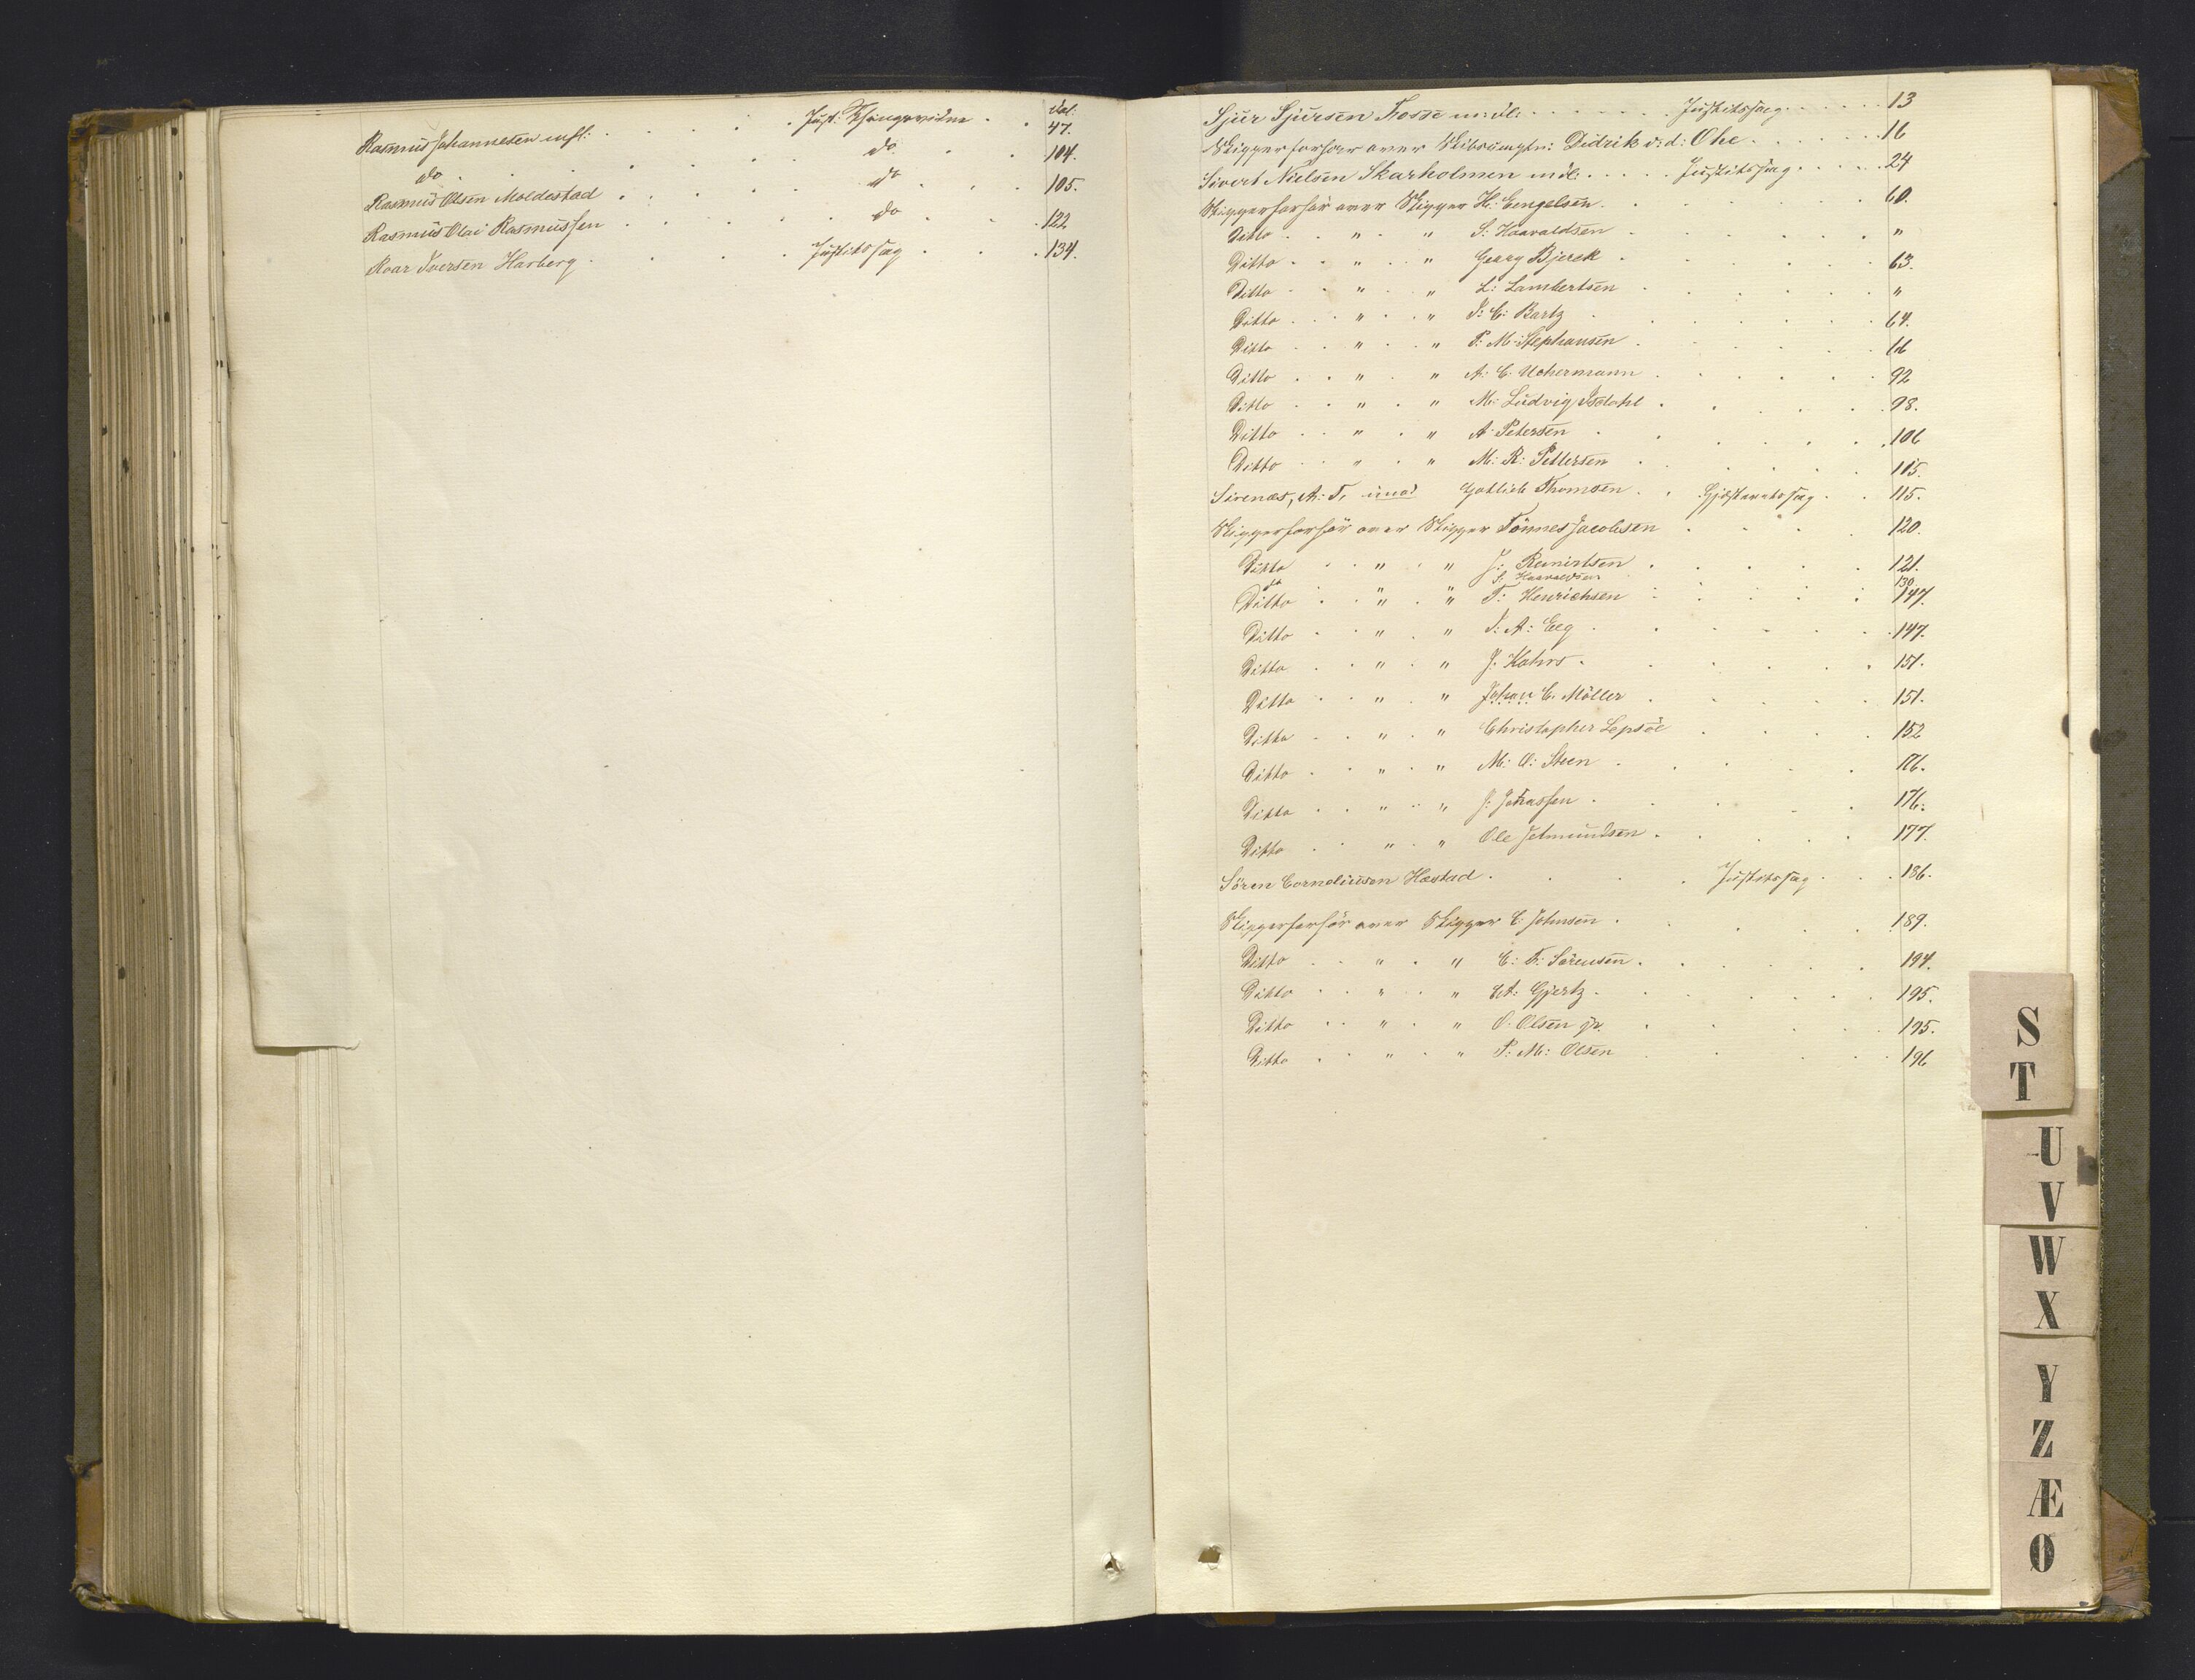 Fol:
Rasmus Johannesen mfl: . . . . Just: Thingsvidne . . 47.
do . . . . . do . . 104.
Rasmus Olsen Moldestad . . . . do . . 105.
Rasmus Olai Rasmussen . . . . do . . 122
Roar Iversen Harberg . . . . Justitssag . . 134.
Sjur Sjursen Fosse m: fl: . . . . Justitssag . . . 13
Skipperforhør over Skibscaptn: Didrik v: d: Ohe . . . . 16
Sivert Nielsen Skarholmen m fl: . . . . Justitssag . . . 24
Skipperforhør over Skipper H: Eengelsen . . . . 60.
Ditto . . " . " S: Haavaldsen . . . . "
Ditto . . " . " Georg Bjerck . . . . 63.
Ditto . . " . " L: Lambertsen . . . . "
Ditto . . " . " J: C: Bartz . . . . 64.
Ditto . . " . " P: M: Stephansen . . . . 66
Ditto . . " . " A: C: Uchermann . . . . 92
Ditto . . " . " M: Ludvig Isdahl . . . . 98.
Ditto . . " . " A: Petersen . . . . 106
Ditto . . " . " M: R: Pettersen . . . . 115.
Sirenæs, A: T. imod Gotlieb Thomsen . . Gjæsteretssag . . 115.
Skipperforhør over Skipper Tönnes Jacobsen . . . 120.
Ditto . . " . " J: Reinertsen . . . . 121.
do " " S: Haavaldsen . . . . 130.
Ditto . . " . " T: Henrichsen . . . . 147.
Ditto . . " . " J: A: Eeg . . . . 147.
Ditto . . " . " J: Kahrs . . . . 151.
Ditto . . " . " Johan C. Möller . . . . 151.
Ditto . . " . " Christopher Lepsöe . . . . 152
Ditto . . " . " M: O: Steen . . . . 176.
Ditto . . " . " J: Johassen . . . . 176.
Ditto . . " . " Ole Jetmundsen . . . . 177.
Sören Corneliusen Hæstad . . . . Justitssag . . . 186.
Skipperforhør over Skipper C: Johnsen . . . . 189.
Ditto . . " . " C: F: Sörensen . . . . 194.
Ditto . . " . " A: Gjertz . . . . 195.
Ditto . . " . " O. Olsen jr. . . . . 195.
Ditto . . " . " P: M: Olsen . . . . 196
S
T
U
V
W
X
Y
Z
Æ
Ø